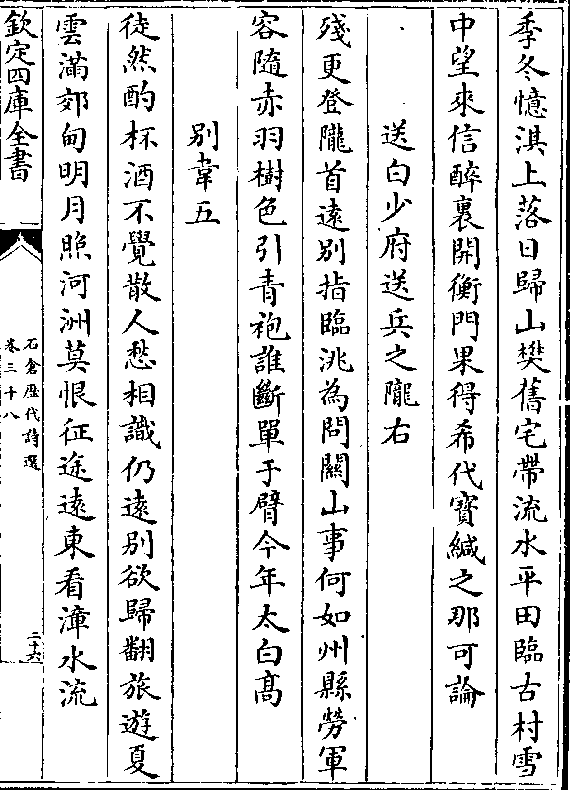 季冬憶淇上落日歸山樊舊宅帶流水平田臨古村雪
中望來信醉裏開衡門果得希代寳緘之那可論
送白少府送兵之隴右
殘更登隴首遠别指臨洮為問關山事何如州縣勞軍
容隨赤羽樹色引青袍誰斷單于臂今年太白髙
别韋五
徒然酌杯酒不覺散人愁相識仍遠别欲歸翻旅遊夏
雲滿郊甸明月照河洲莫恨征途遠東看漳水流
欽定四庫全書
石倉歴代詩選
卷三十八
二十六